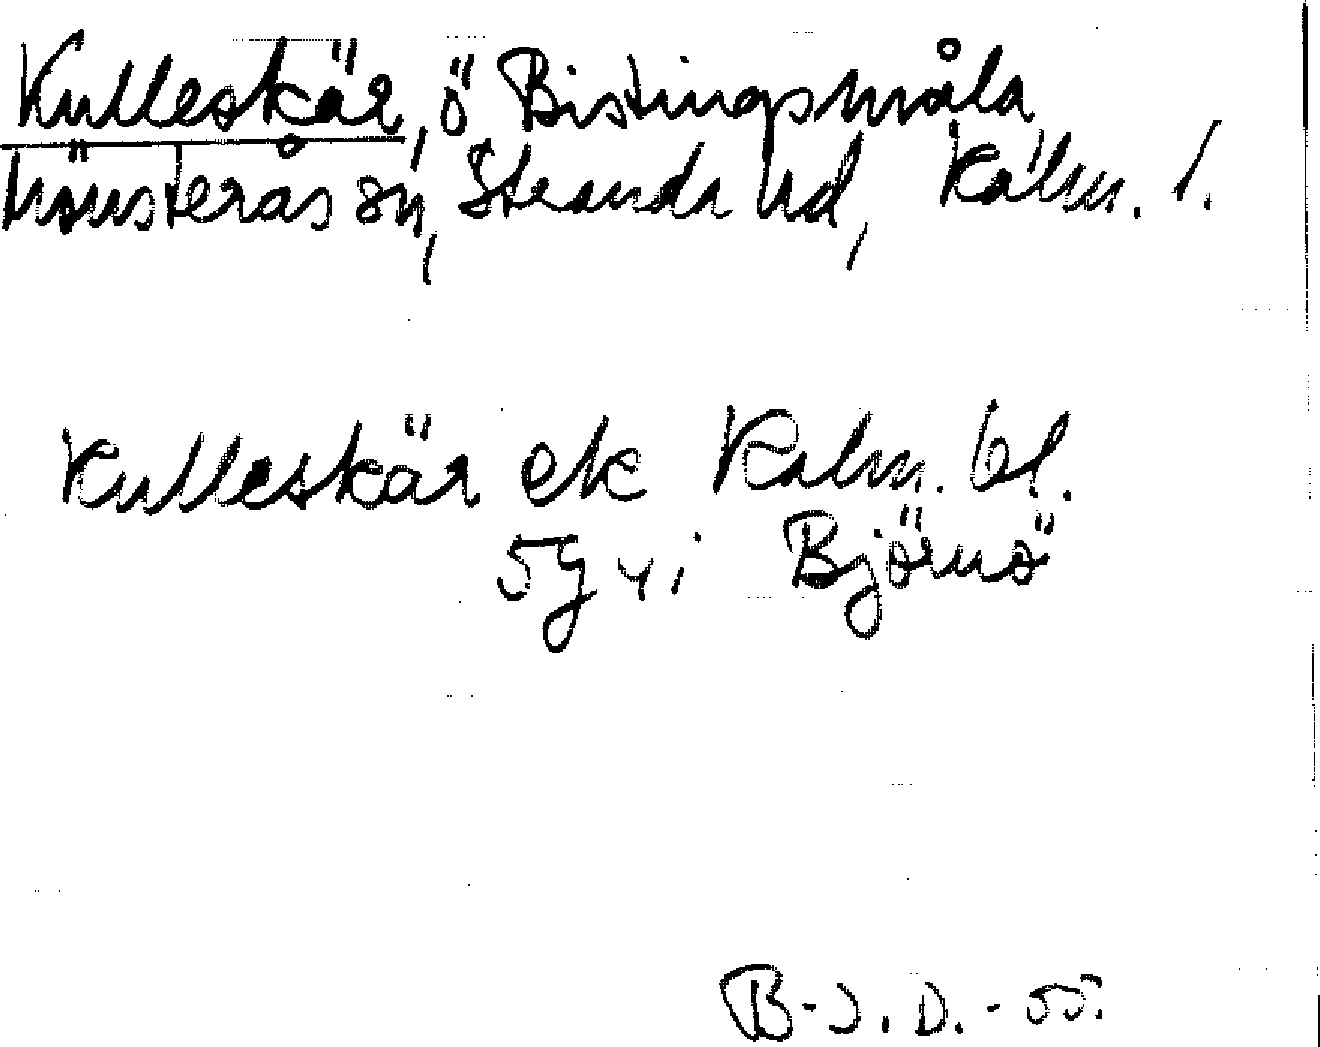 Kulleskär, ö Bistingsmåla
Mönsterås sn, Stranda hd, Kalm. l.
Kulleskär ek Kalm. bl.
5g yi Björnö
B-J. D. - 55.